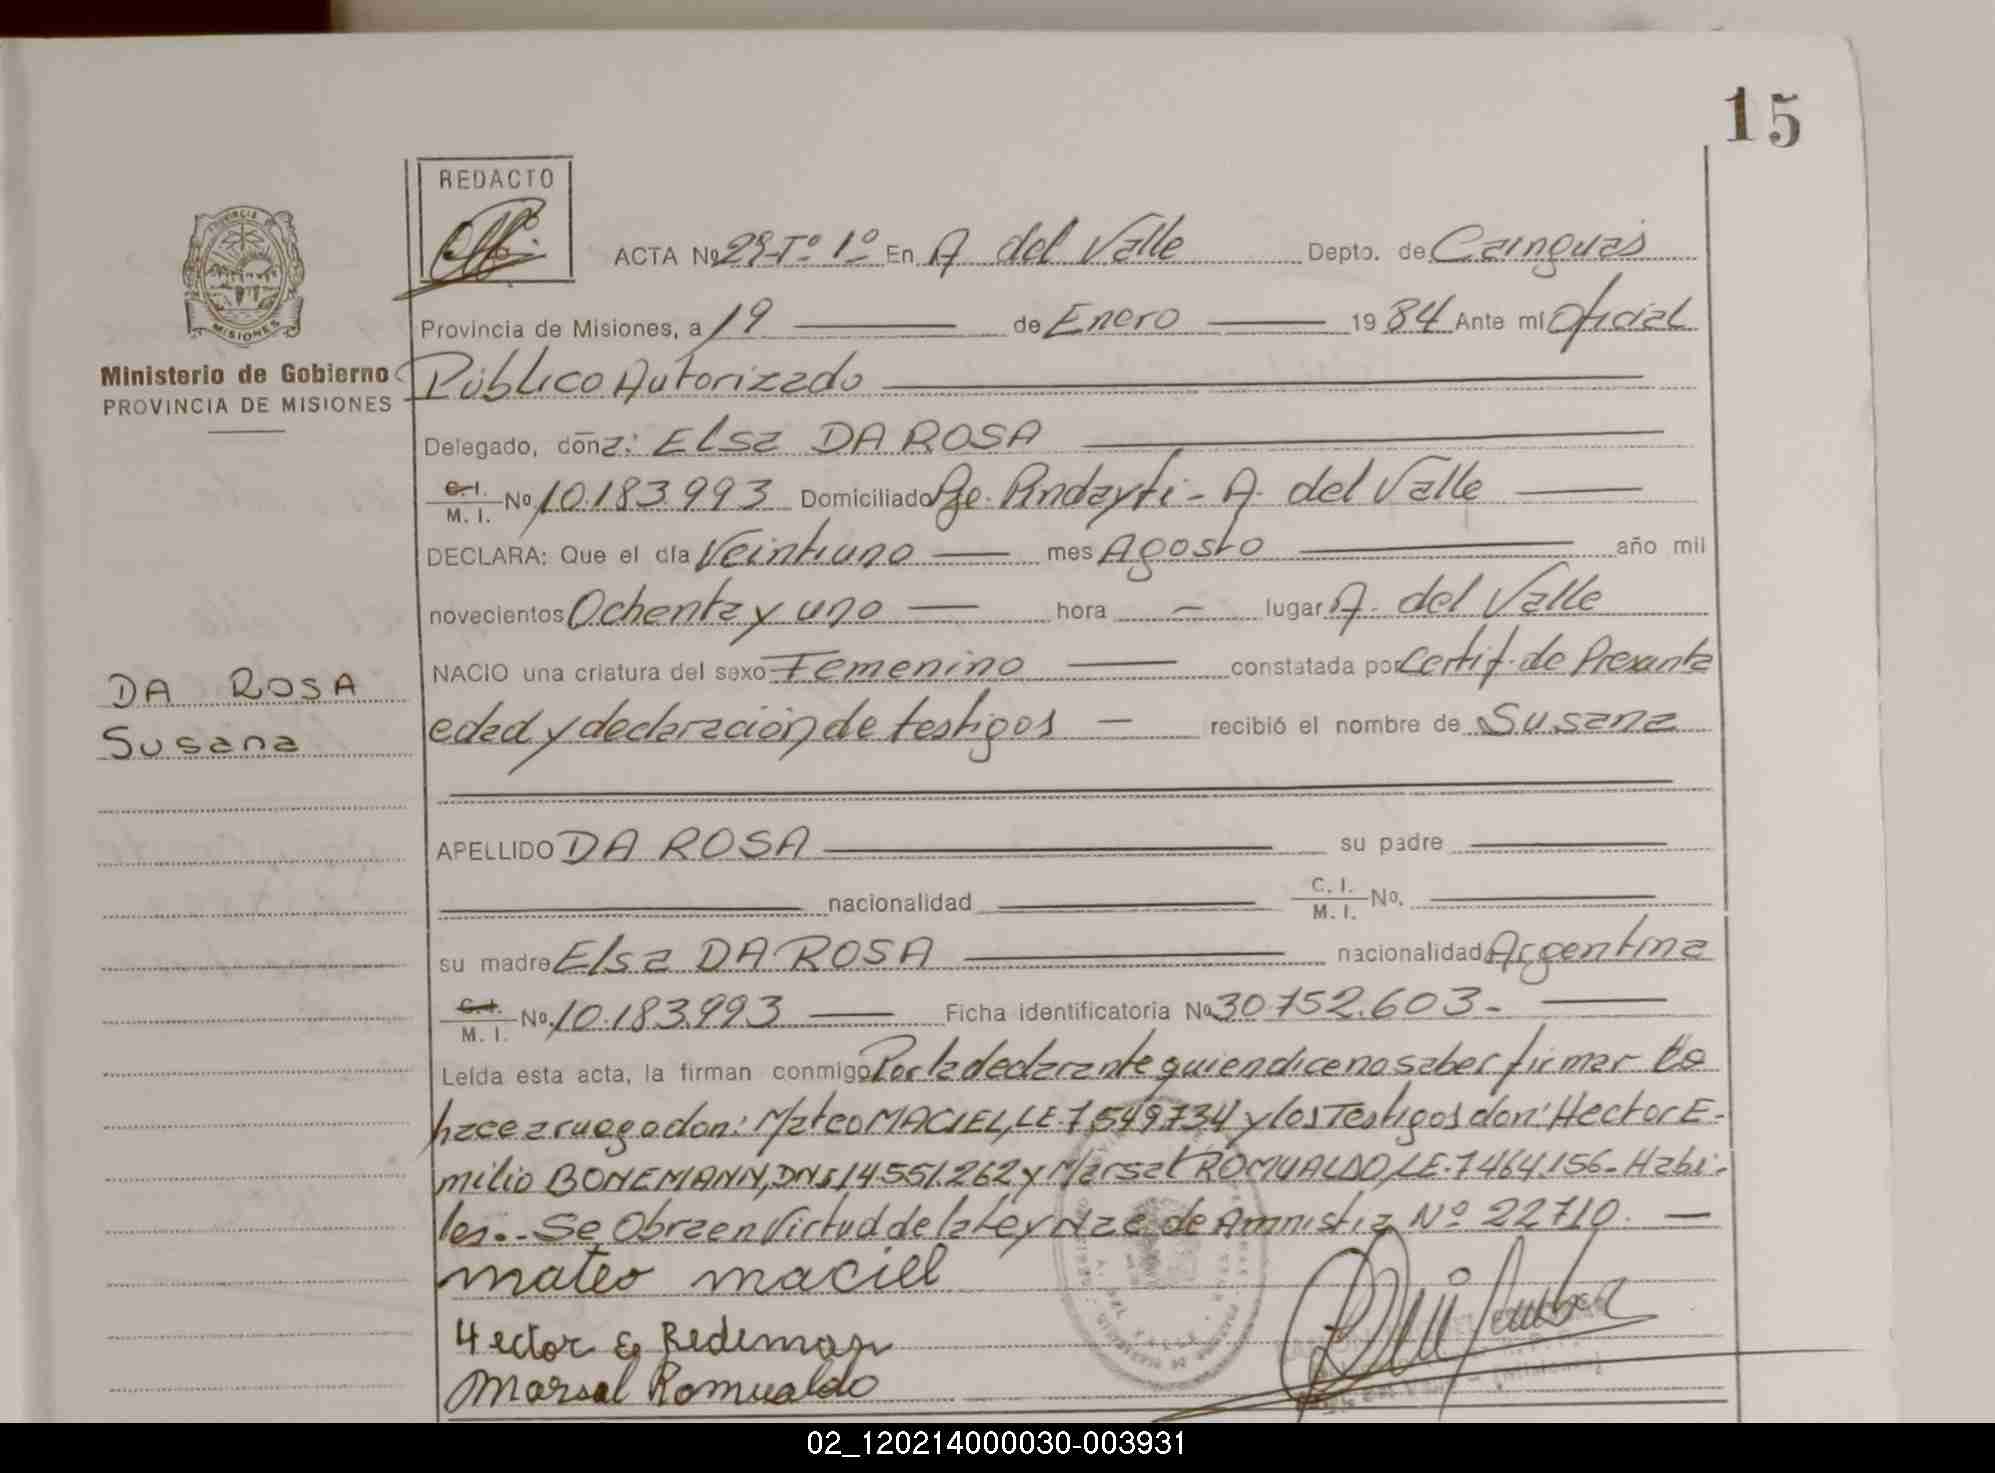 15
REDACTO
PROVINCIA DE
MISIONES
Ministerio de Gobierno
PROVINCIA DE MISIONES
ACTA Nº 29-Tº 1º En A. del Valle Depto. de Cainguas
Provincia de Misiones, a 19 de Enero 1984 Ante mí Oficial
Público Autorizado
Delegado, doña: Elsa DA ROSA
C. I. M. I. Nº 10.183.993 Domiciliado Pje. Pindayti - A. del Valle
DECLARA: Que el día Veintiuno mes Agosto año mil
novecientos Ochenta y uno hora — lugar A. del Valle
NACIO una criatura del sexo Femenino constatada por Certif. de Presunta
edad y declaración de testigos — recibió el nombre de Susana
DA ROSA
Susana
APELLIDO DA ROSA su padre
nacionalidad C. I. M. I. Nº.
su madre Elsa DA ROSA nacionalidad Argentina
C. I. M. I. Nº. 10.183.993 Ficha identificatoria Nº 30.752.603.-
Leída esta acta, la firman conmigo Por la declarante quien dice no saber firmar lo
hace a ruego don: Mateo MACIEL, LE. 7.549.734 y los Testigos don: Hector E-
milio BONEMANN, DNI. 14.551.262 y Marsal ROMUALDO, LE. 7464.156.- Habi-
les.- Se Obra en Virtud de la Ley Nac. de Amnistia Nº 22710. —
mateo maciel
Hector E Bedeman
Marsal Romualdo
02_120214000030-003931